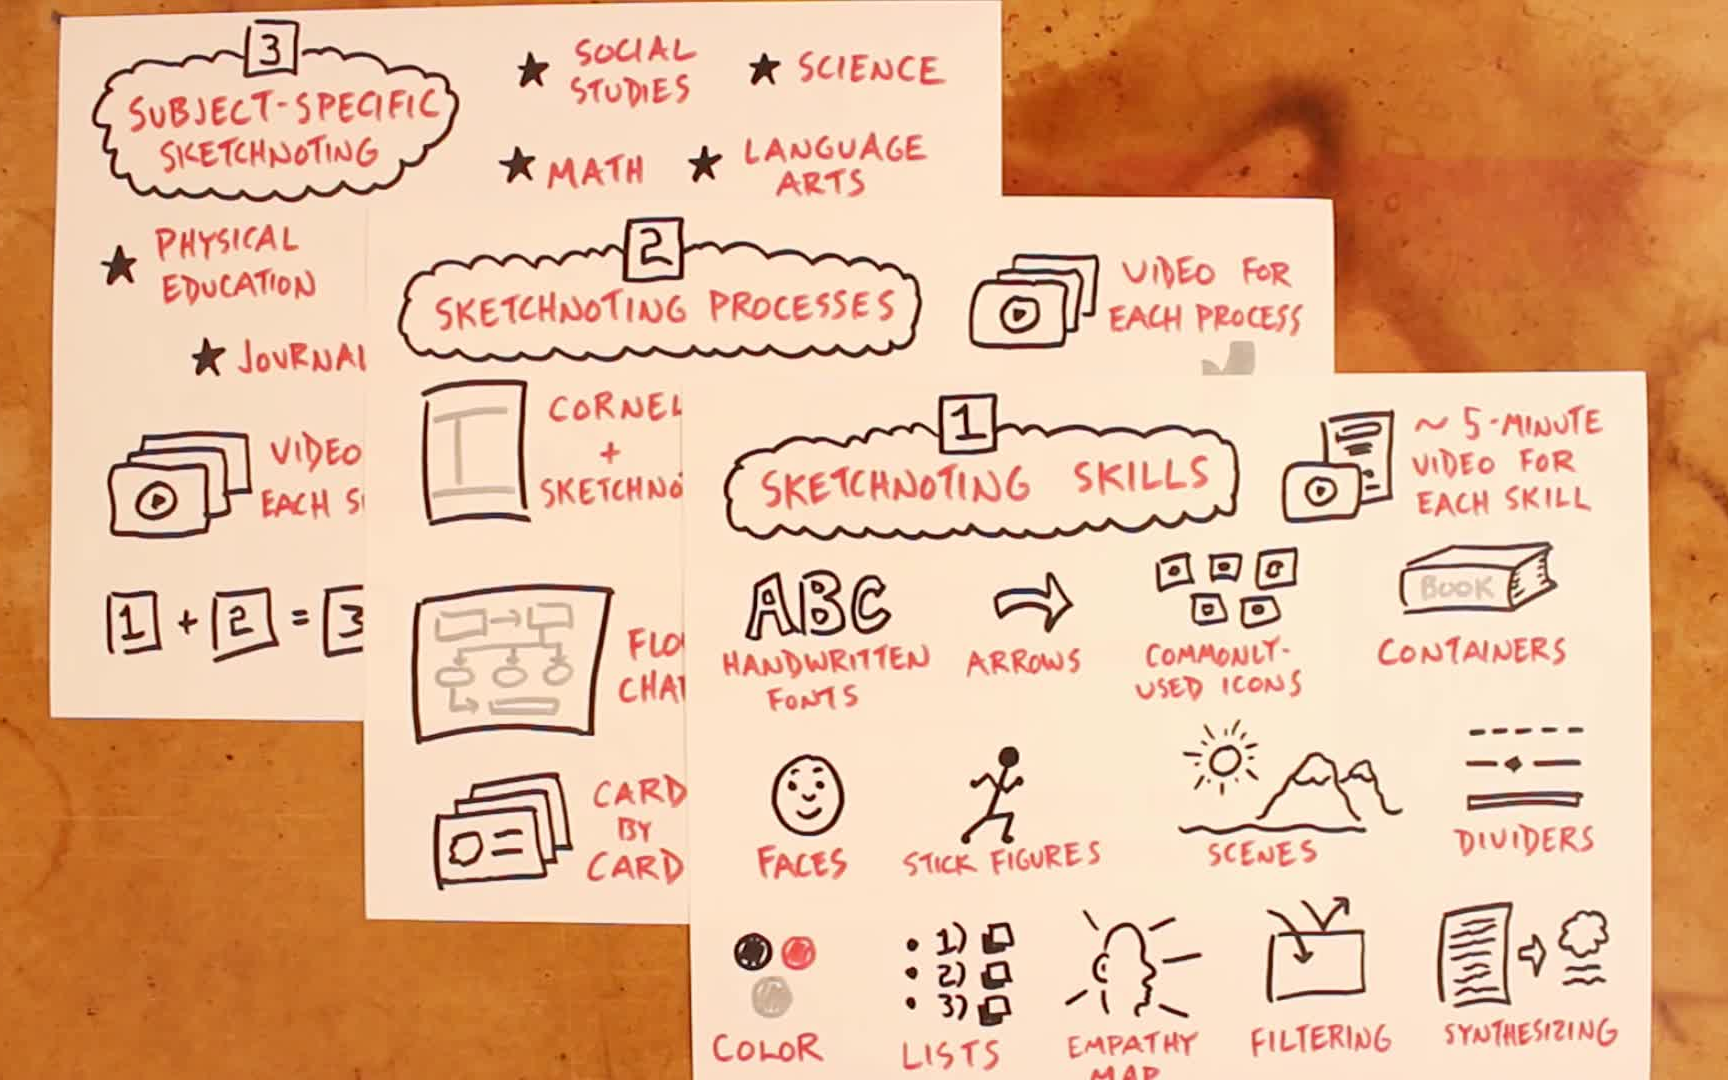 3
SUBJECT-SPECIFIC
SKETCHNOTING
SOCIAL
STUDIES
SCIENCE
MATH
LANGUAGE
ARTS
PHYSICAL
EDUCATION
JOURNAL
VIDEO
EACH
1 + 2 = 3
2
SKETCHNOTING PROCESSES
VIDEO FOR
EACH PROCESS
CORNEL
+
SKETCHNO
FLO
CHA
CARD
BY
CARD
1
SKETCHNOTING SKILLS
~ 5-MINUTE
VIDEO FOR
EACH SKILL
ABC
HANDWRITTEN
FONTS
ARROWS
COMMONLY-
USED ICONS
BOOK
CONTAINERS
FACES
STICK FIGURES
SCENES
DIVIDERS
COLOR
• 1)
• 2)
• 3)
LISTS
EMPATHY
MAP
FILTERING
SYNTHESIZING